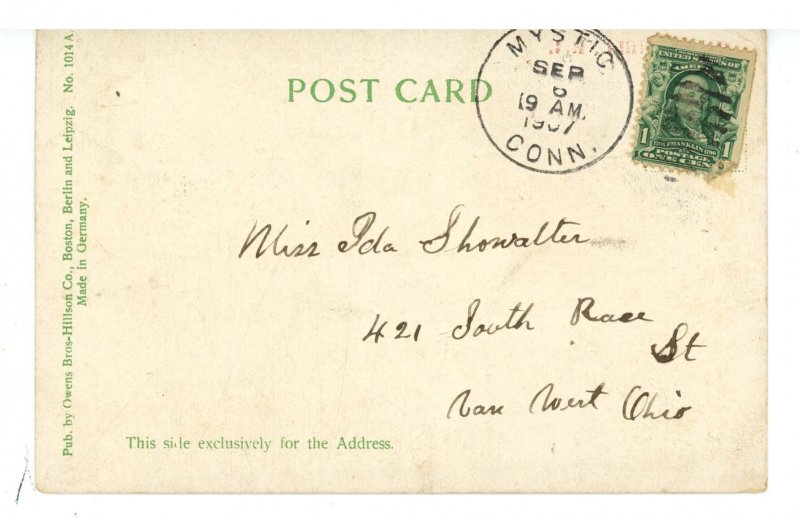 POST CARD
MYSTIC
SEP
6
9 AM.
1907
CONN.
UNITED STATES OF
AMERICA
1 FRANKLIN 1
POSTAGE
ONE CENT
Miss Ida Showalter
421 South Race
St
Van Wert Ohio
This side exclusively for the Address.
Pub. by Owens Bros-Hillson Co., Boston, Berlin and Leipzig. No. 1014 A.
Made in Germany.